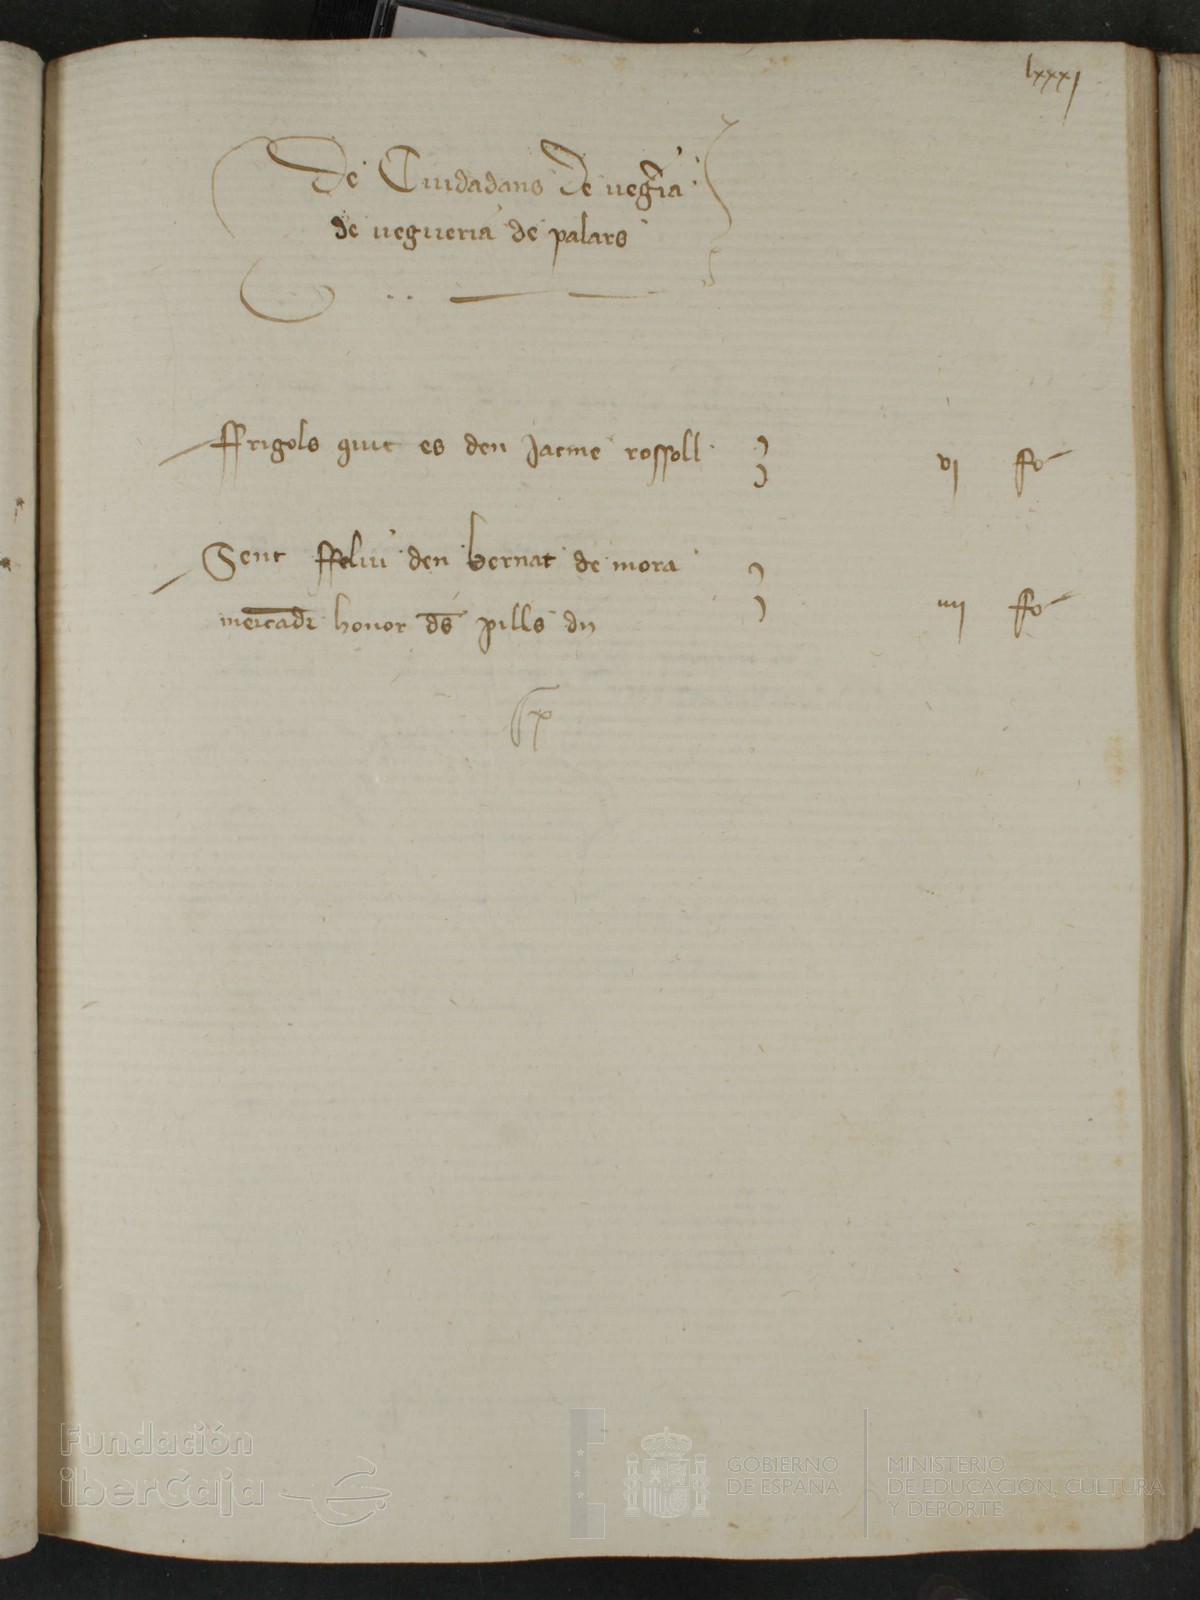 lxxxj
De Ciudadans de uegria
de uegueria de palars
ffrigols quit es den Jacme rossoll
vj ffo
Sent ffeliu den bernat de mora
mercadr honor ds pills dn
iiij ffo
Fundación
iberCaja
GOBIERNO
DE ESPAÑA
MINISTERIO
DE EDUCACIÓN, CULTURA
Y DEPORTE